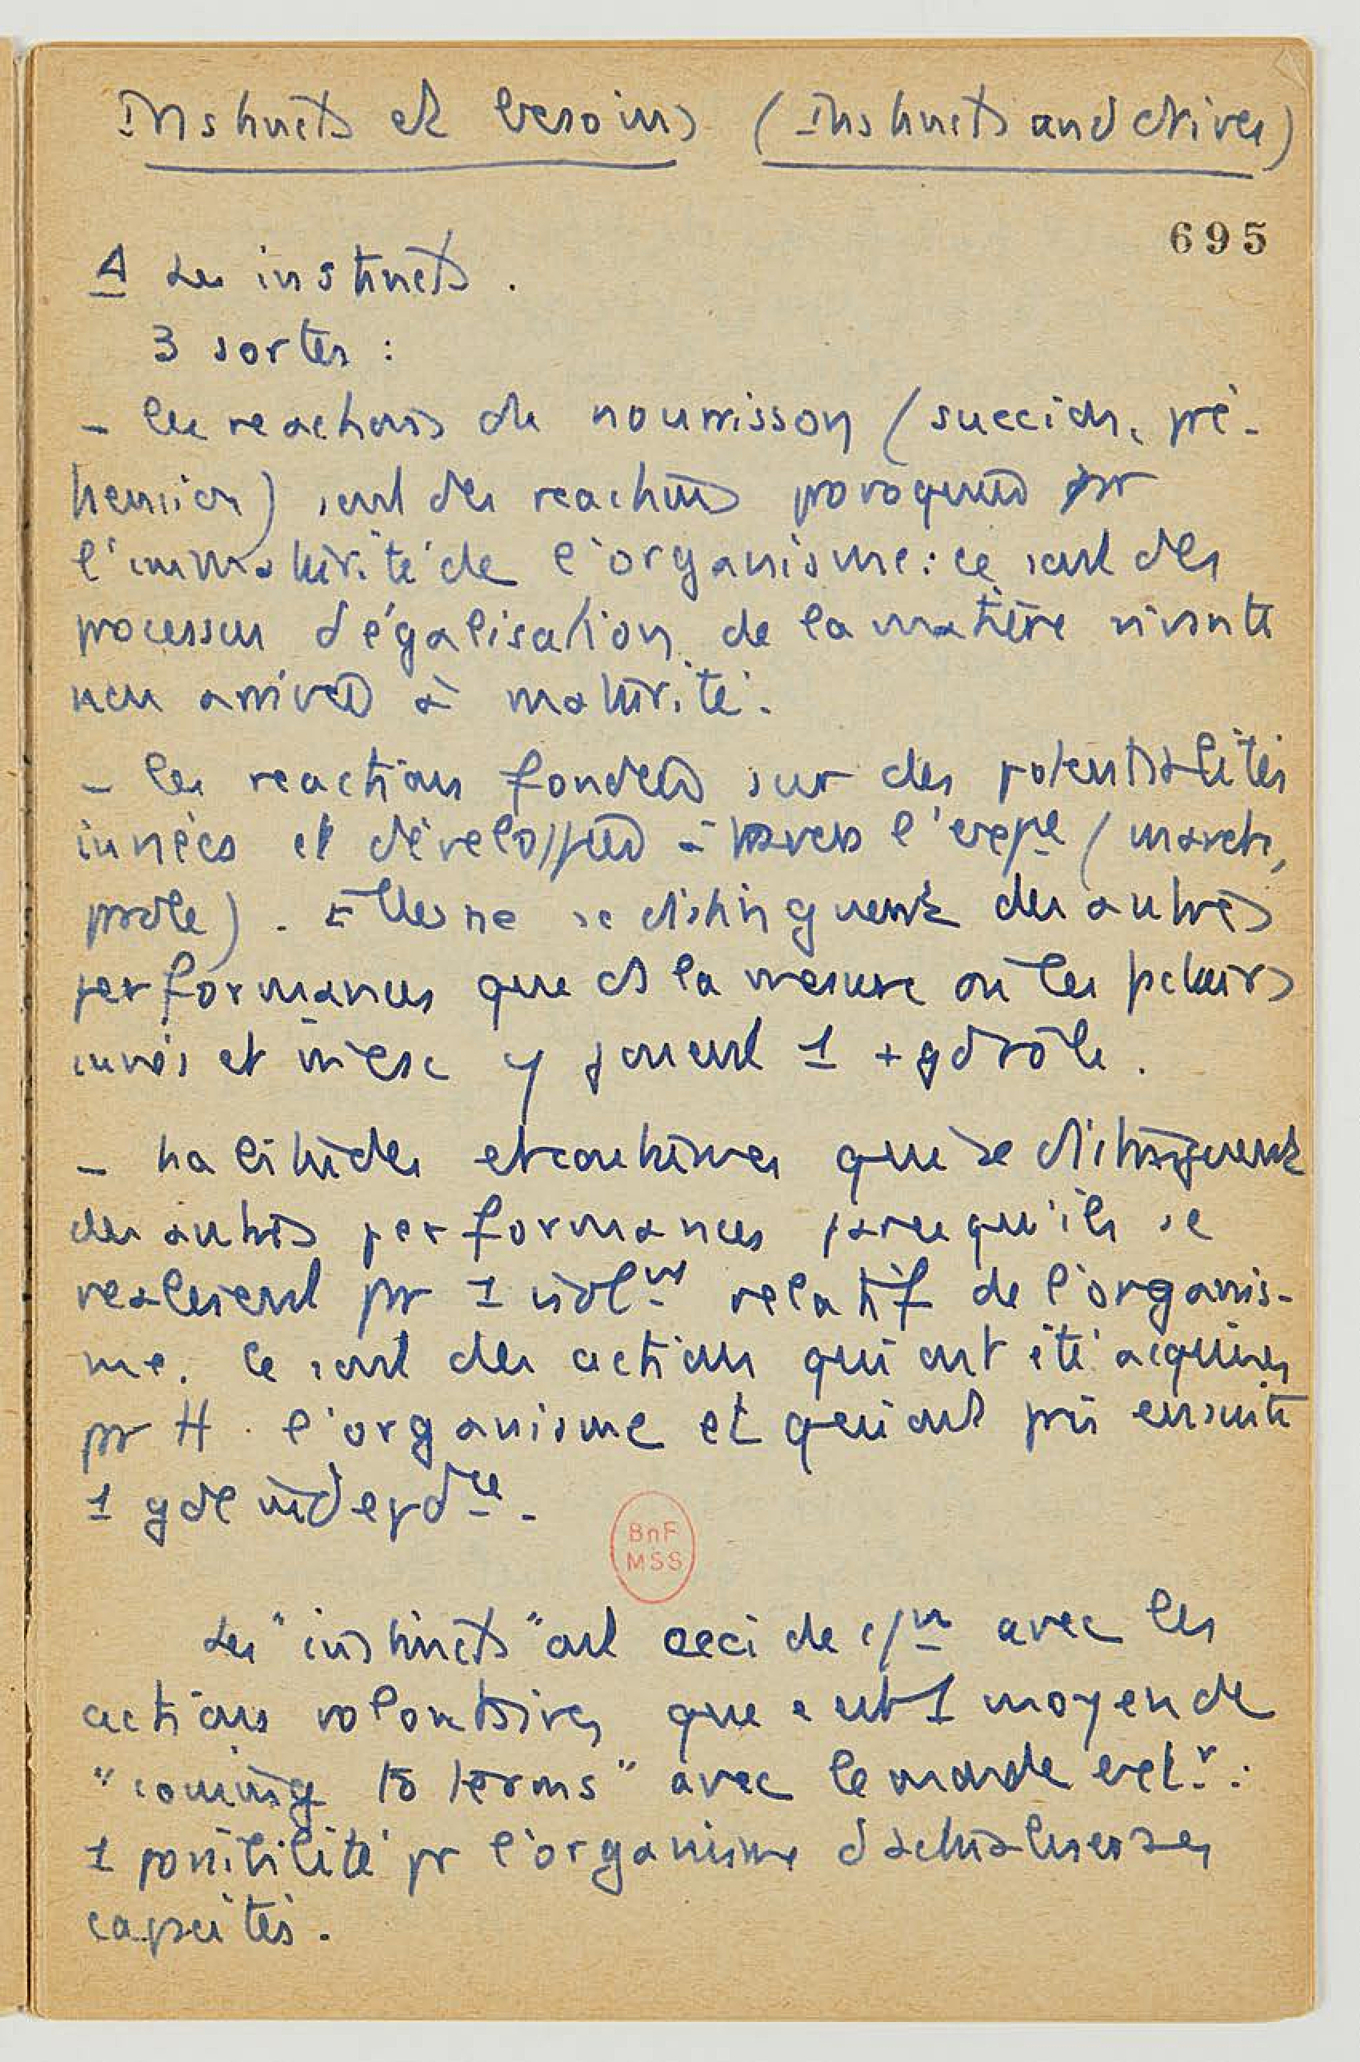 Instincts et besoins (Instincts and drives)
695
A Les instincts.
3 sortes :
- les reactions du nourrisson (succion, pré-
hension) sont des reactions provoquées par
l'immaturité de l'organisme : ce sont des
processus d'égalisation de la matière vivante
non arrivée à maturité.
- les reactions fondées sur des potentialités
innées et développées à travers l'expce (marche,
parole). Elles ne se distinguent des autres
performances que ds la mesure où les facteurs
innés et y jouent 1 + gd rôle.
- habitudes et coutumes qui se distinguent
des autres performances parce qu'ils se
realisent par 1 isolnt relatif de l'organis-
me. Ce sont des actions qui ont été acquises
par tt l'organisme et qui ont pris ensuite
1 gde indepdce.
BnF
MSS
Les "instincts" ont ceci de c/un avec les
actions volontaires que c'est 1 moyen de
"coming to terms" avec le monde extr :
1 possibilité pr l'organisme d'actualiser ses
capacités.